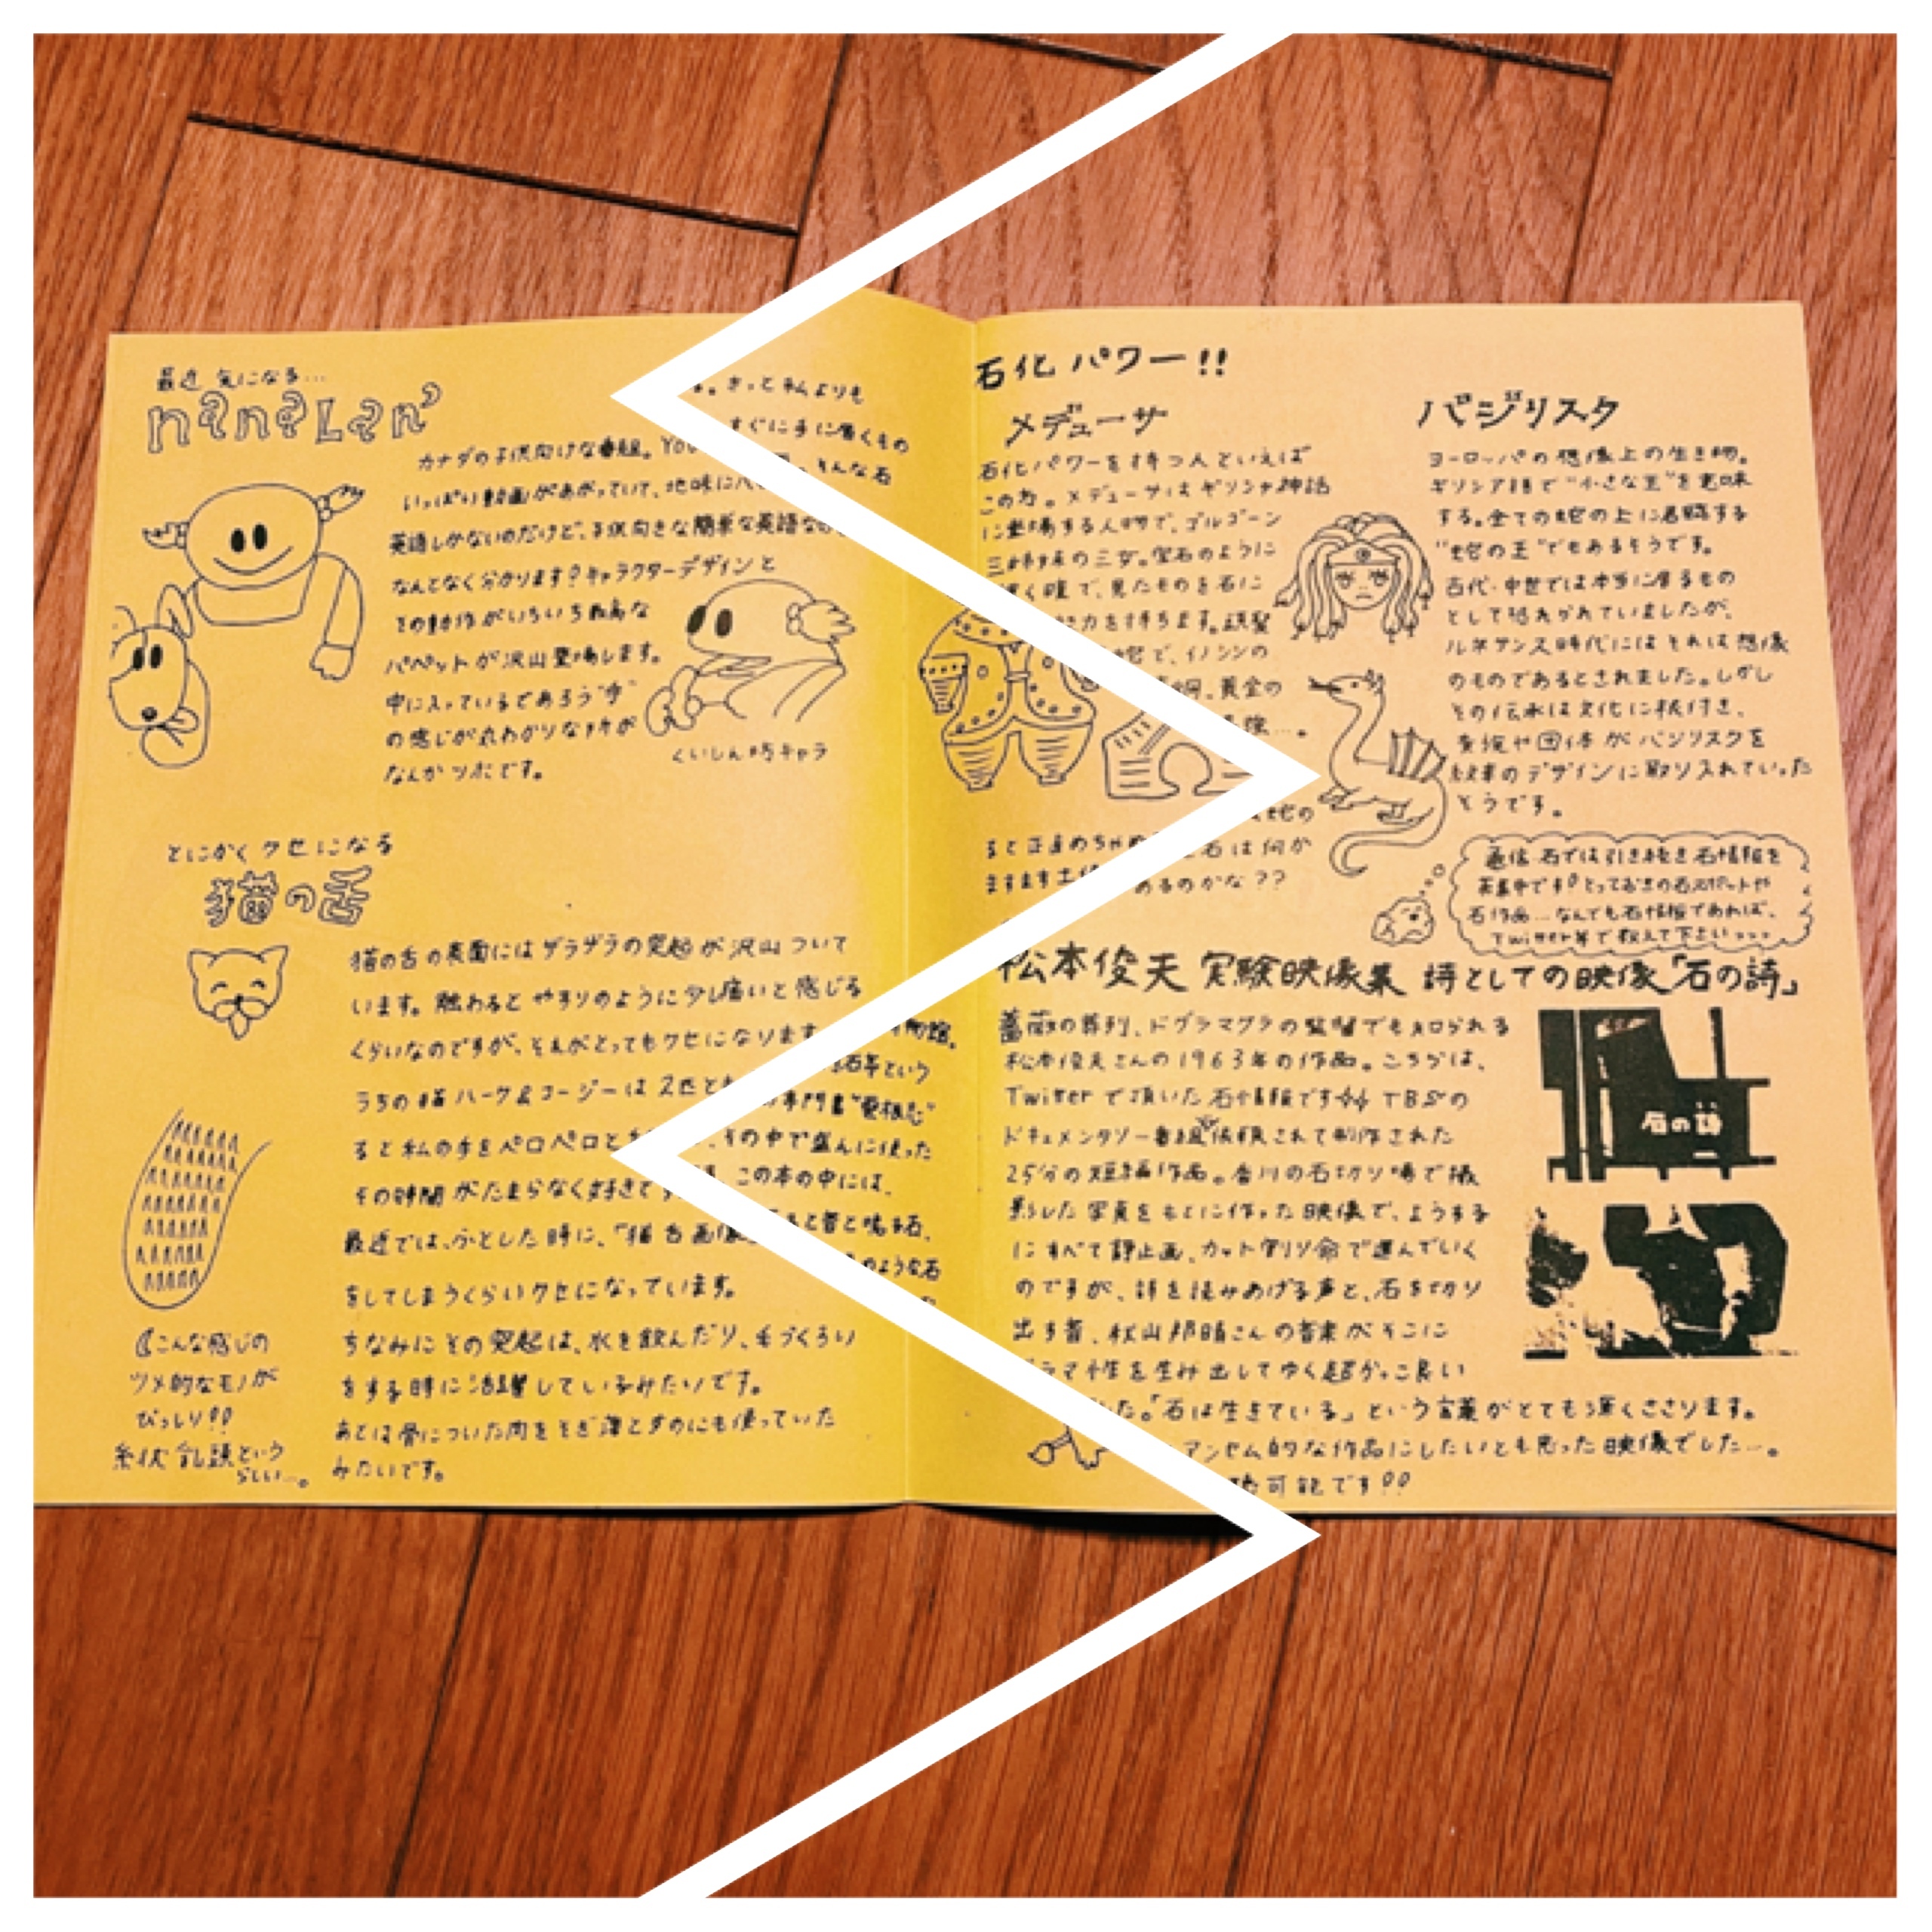 最近 気になる…
nanaLan'
カナダの子供向けな番組。You
いっぱい動画があがっていて、地味にハ
英語しかないのだけど、子供向きな簡単な英語な
なんとなく分かります?キャラクターデザインと
その動作がいちいち最高な
パペットが沢山登場します。
中に入っているであろう"手"
の感じが丸わかりな所が
なんかツボです。
くいしん坊キャラ
とにかくクセになる
猫の舌
猫の舌の表面にはザラザラの突起が沢山ついて
います。触わるとやすりのように少し痛いと感じる
くらいなのですが、それがとってもクセになります
うちの猫ハーク&コージーは2匹とも
ると私の手をペロペロと
その時間がたまらなく好きで
最近では、ふとした時に、「猫 舌 画像
をしてしまうくらいクセになっています。
ちなみにその突起は、水を飲んだり、毛づくろい
をする時に活躍しているみたいです。
あとは骨についた肉をそぎ落とすのにも使っていた
みたいです。
こんな感じの
ツメ的なモノが
びっしり!!
糸状乳頭という
らしい…。
る。きっと私よりも
すぐに手に届くもの
そんな石
物館。
石等という
の専門書"愛根志"
、その中で盛んに使った
この本の中には、
ると音と鳴る石、
のような石
石化パワー!!
メデューサ
石化パワーを持つ人といえば
この方。メデューサはギリシャ神話
に登場する人物で、ゴルゴーン
三姉妹の三女。宝石のように
輝く瞳で、見たものを石に
能力を持ちます。頭髪
蛇で、イノシシの
黄金の
最強…。
蛇の
石は何か
めるのかな??
バジリスク
ヨーロッパの想像上の生き物。
ギリシア語で"小さな王"を意味
する。全ての蛇の上に君臨する
"蛇の王"でもあるそうです。
古代・中世では本当に居るもの
として恐れられていましたが、
ルネサンス時代にはそれは想像
のものであるとされました。しかし
その伝承は文化に根付き、
貴族や団体がバジリスクを
紋章のデザインに取り入れていった
そうです。
通信 石では引き続き石情報を
募集中です!とっておきの石スポットや
石作品…なんでも石情報であれば、
Twitter等で教えて下さい
松本俊夫 実験映像集 詩としての映像「石の詩」
薔薇の葬列、ドグラマグラの監督でも知られる
松本俊夫さんの1963年の作品。こちらは、
Twitterで頂いた石情報です TBSの
ドキュメンタリー番組で依頼されて制作された
25分の短編作品。香川の石切り場で撮
影した写真をもとに作った映像で、ようする
にすべて静止画、カット割り命で進んでいく
のですが、詩を読みあげる声と、石を切り
出す音、秋山邦晴さんの音楽がそこに
ラマ性を生み出してゆく超かっこ良い
した。「石は生きている」という言葉がとても深くささります。
アンセム的な作品にしたいとも思った映像でした…。
可能です!!
石の詩